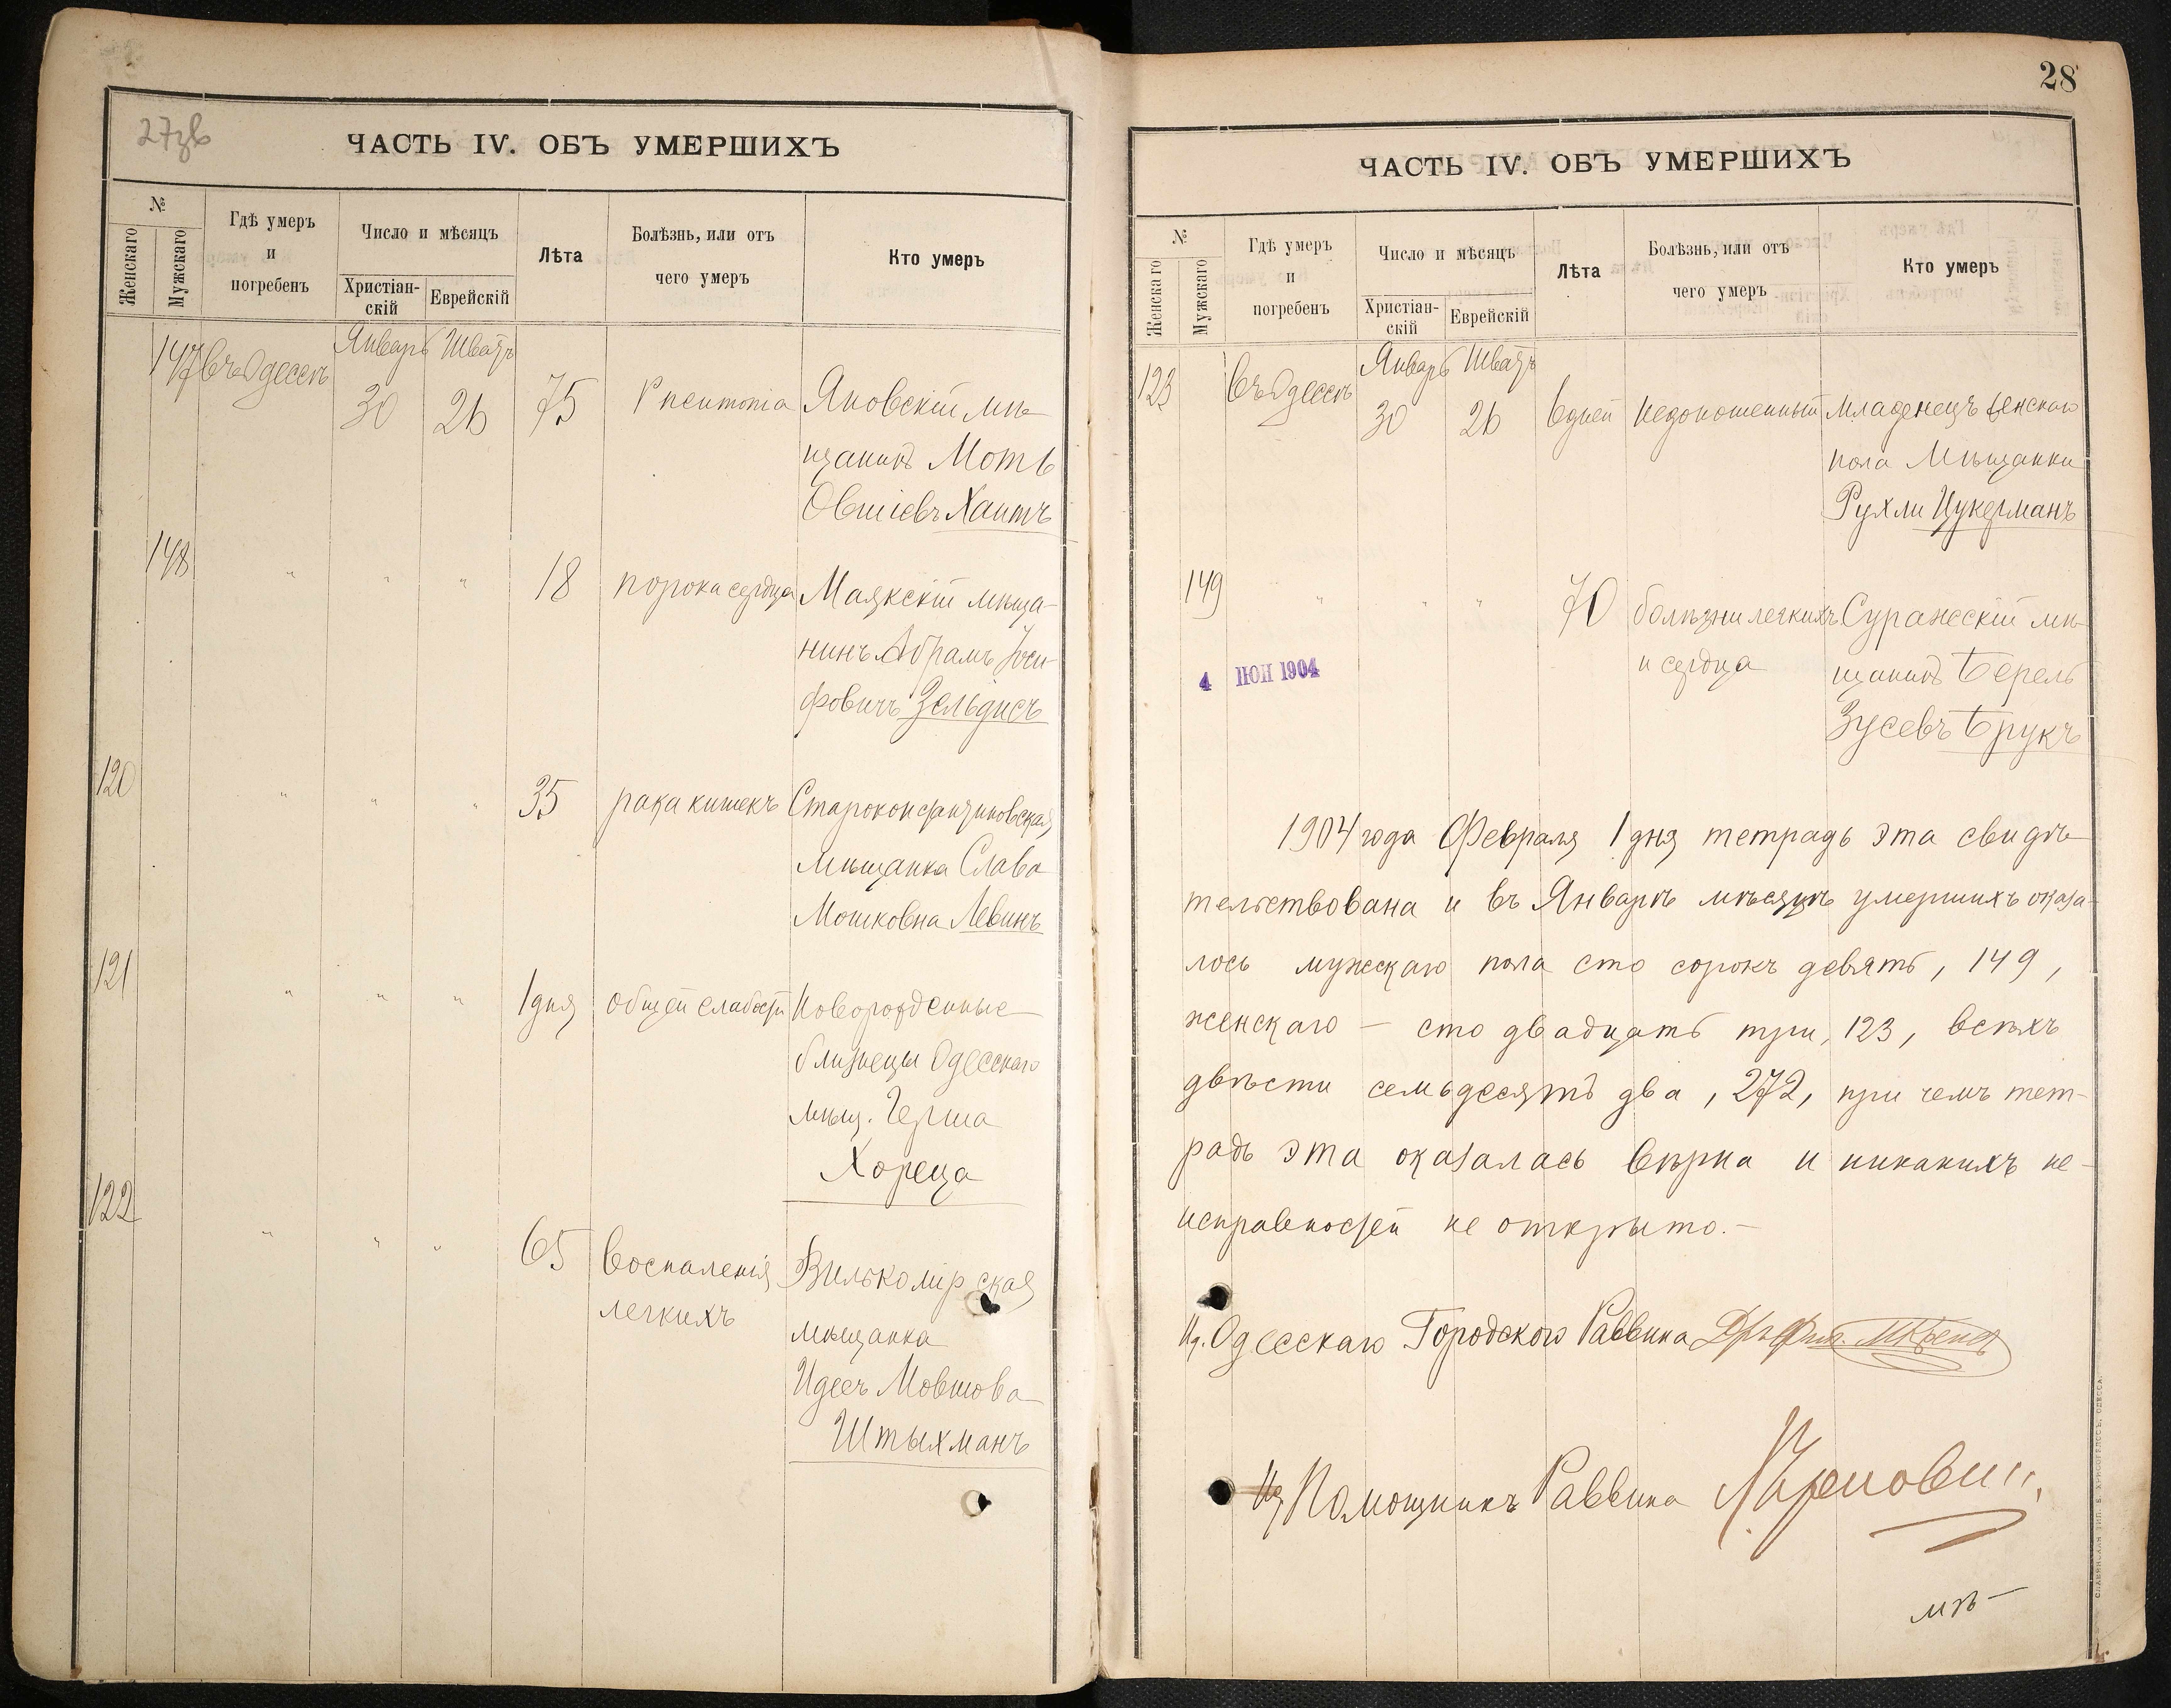 27зв
ЧАСТЬ IV. ОБЪ УМЕРШИХЪ
№
Женскаго
Мужскаго
Гдѣ умеръ
и
погребенъ
Число и мѣсяцъ
Христіан-
скій
Еврейскій
Лѣта
Болѣзнь, или отъ
чего умеръ
Кто умеръ
Январь Шватъ
147 въ Одессѣ
30 26 75 Pneumonia Яновскій мѣ-
щанинъ Мотя
Овшіевъ Хаитъ
148 " " " 18 порока сердца Маякскій мѣща-
нинъ Абрамъ Іоси-
фовичъ Зельдисъ
120 " " " 35 рака кишекъ Староконстантиновская
мѣщанка Слава
Мошковна Левинъ
121 " " " 1 дня общей слабости Новорожденные
близнецы Одесскаго
мѣщ. Герша
Хореца
122 " " " 65 воспаленія Вилькомірская
легкихъ
мѣщанка
Идесъ Мовшова
Штыхманъ
28
ЧАСТЬ IV. ОБЪ УМЕРШИХЪ
№
Женскаго
Мужскаго
Гдѣ умеръ
и
погребенъ
Число и мѣсяцъ
Христіан-
скій
Еврейскій
Лѣта
Болѣзнь, или отъ
чего умеръ
Кто умеръ
Январь Шватъ
123 въ Одессѣ
30 26 6 дней недоношенный младенецъ женскаго
пола Мѣщанки
Рухли Цукерманъ
149 " " " 70 болѣзни легкихъ Суражскій мѣ-
и сердца щанинъ Берель
4 ІЮН 1904
Зусевъ Брукъ
1904 года Февраля 1 дня тетрадь эта свидѣ-
тельствована и въ Январѣ мѣсяцѣ умершихъ оказа-
лось мужскаго пола сто сорокъ девять, 149,
женскаго - сто двадцать три, 123, всѣхъ
двѣсти семьдесятъ два, 272, при чемъ тет-
радь эта оказалась вѣрна и никакихъ не-
исправностей не открыто.-
И.д. Одесскаго Городского Раввина
Помощникъ Раввина
СЛАВЯНСКАЯ ТИП. Е. ХРИСОГЕЛОСЪ, ОДЕССА.